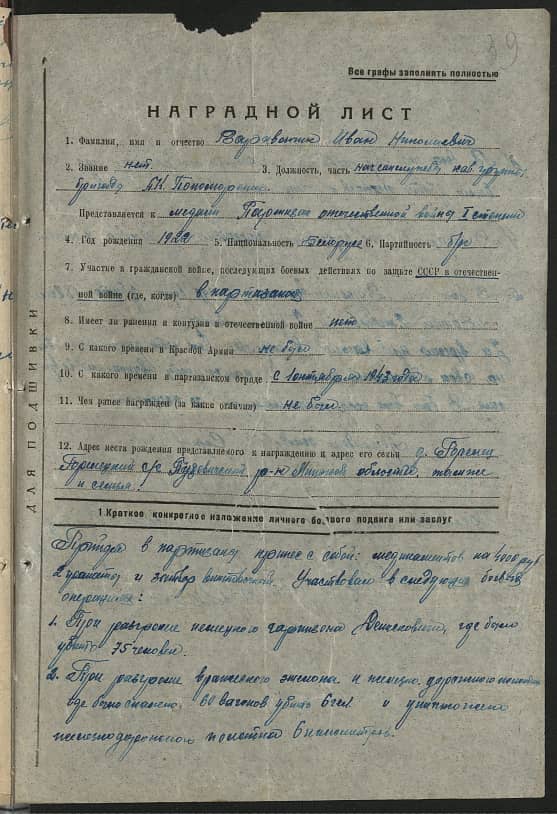 39
Все графы заполнять полностью
НАГРАДНОЙ ЛИСТ
1. Фамилия, имя и отчество Варавонин Иван Николаевич
2. Звание нет. 3. Должность, часть начсанслужбы кав. группы
бригады П.К. Пономаренко.
Представляется к медали Партизан отечественной войны I степени
4. Год рождения 1922 5. Национальность белорус 6. Партийность б/п
7. Участие в гражданской войне, последующих боевых действиях по защите СССР в отечествен-
ной войне (где, когда) в партизанах
8. Имеет ли ранения и контузии в отечественной войне нет.
9. С какого времени в Красной Армии не был
10. С какого времени в партизанском отряде с 1 сентября 1943 года
11. Чем ранее награжден (за какие отличия) не был
12. Адрес места рождения представляемого к награждению и адрес его семьи д.
с/с р-н Минской области, там же
и семья.
ДЛЯ ПОДШИВКИ
1 Краткое, конкретное изложение личного боевого подвига или заслуг
Придя в партизаны принес с собой: медикаментов на 4000 руб
2 гранаты и затвор винтовочный. Участвовал в следующих боевых
операциях:
1. При разгроме немецкого гарнизона где было
убито 75 человек.
2. При разгроме вражеского эшелона и железно дорожного полотна
где было спалено 60 вагонов убито 6 чел и уничтожено
железнодорожного полотна 6 километров.